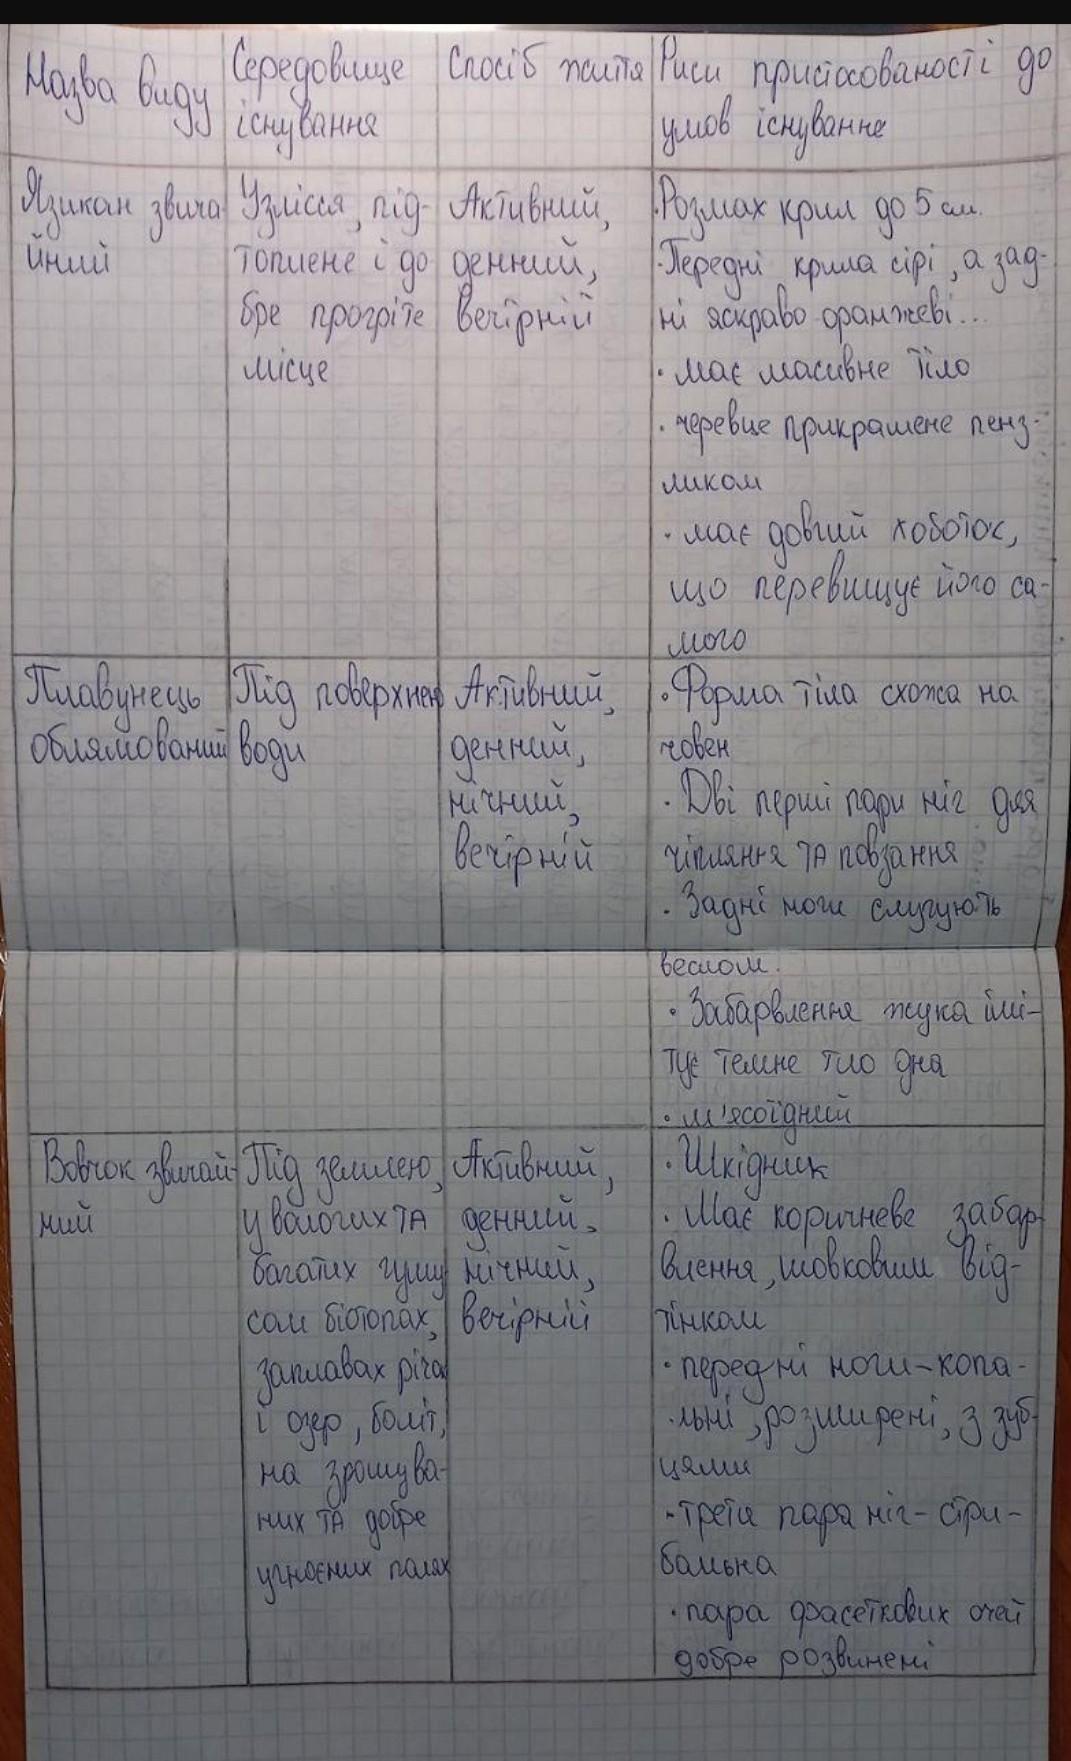 Назва виду
Середовище
існування
Спосіб життя
Риси пристосованості до
умов існування
Язикан звича
йний
Узлісся, під-
топлене і до
бре прогріте
місце
Активний,
денний,
вечірній
·Розмах крил до 5 см.
·Передні крила сірі, а зад-
ні яскраво-оранжеві...
· має масивне тіло
· черевце прикрашене пенз-
ликом
· має довгий хоботок,
що перевищує його са-
мого
Плавунець
облямований
Під поверхнею
води
Активний,
денний,
нічний,
вечірній
· Форма тіла схожа на
човен
· Дві перші пари ніг для
чіпляння та повзання
· Задні ноги слугують
веслом.
· Забарвлення жука імі-
тує темне тло дна
· м'ясоїдний
Вовчок звичай-
ний
Під землею,
у вологих та
багатих гуму
сом біотопах,
заплавах річок
і озер, боліт,
на зрошува-
них та добре
угноєних полях
Активний,
денний,
нічний,
вечірній
· Шкідник
· Має коричневе забар
влення, шовковим від-
тінком
· передні ноги-копа-
льні, розширені, з зуб-
цями
· третя пара ніг- стри-
бальна
· пара фасеткових очей
добре розвинені